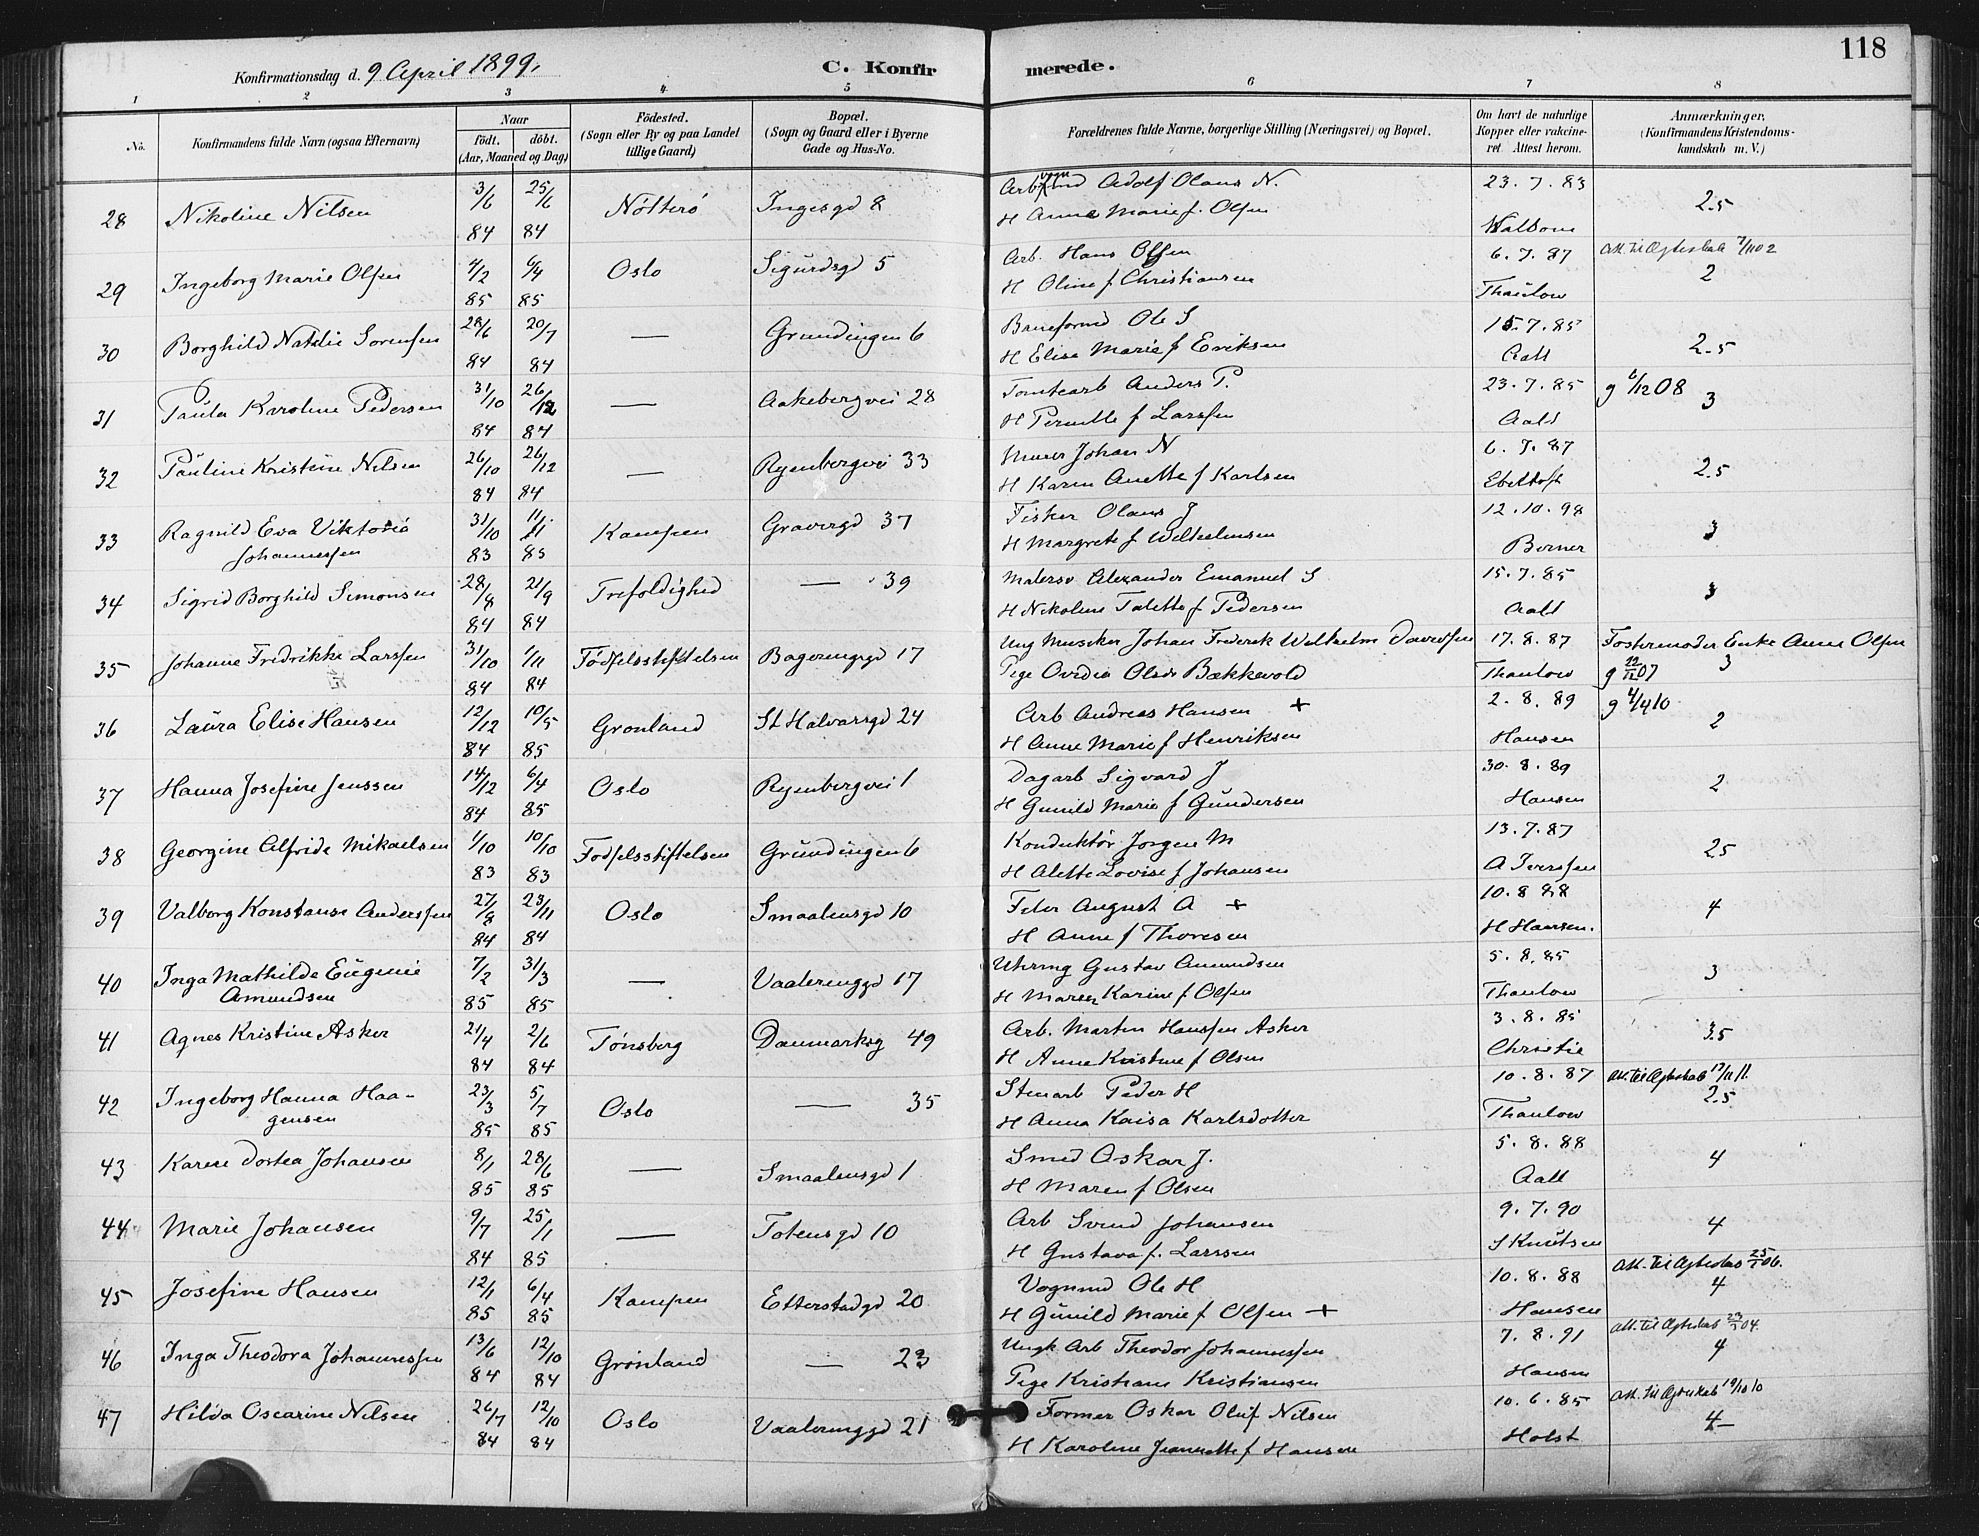 118
Konfirmationsdag d. 9 April 1899.
C. Konfirmerede.
1 2 3 4 5 6 7 8
No.
Konfirmandens fulde Navn (ogsaa Efternavn)
Naar
födt. döbt.
(Aar, Maaned og Dag)
Födested.
(Sogn eller By og paa Landet
tillige Gaard)
Bopæl.
(Sogn og Gaard eller i Byerne
Gade og Hus-No.
Forældrenes fulde Navne, borgerlige Stilling (Næringsvei) og Bopæl.
Om havt de naturlige
Kopper eller vakcine-
ret Attest herom.
Anmærkninger,
(Konfirmandens Kristendoms-
kundskab m. V.)
28 Nikoline Nilsen 3/6 84 25/6 84 Nötterö Ingesgd 8 Adolf Olaus N. 23.7.83 2.5
H Anna Marie f. Olsen
29 Ingeborg Marie Olsen 4/2 85 6/4 85 Oslo Sigurdsgd 5 Arb. Hans Olsen 6.7.87 Att. til Ægteskab 2
H Oline f Christiansen Thaulow
30 Borghild Natalie Sorensen 28/6 84 20/7 84 — Grundingen 6 Ole S 15.7.85 2.5
H Elise Marie f Eriksen Aall
31 Paula Karoline Pedersen 31/10 84 26/12 84 — Aakebergvei 28 Tomtearb Anders P. 23.7.85 g 6/12 08 3
H Pernille f Larssen Aall
32 Pauline Kristine Nilsen 26/10 84 26/12 84 — Ryenbergvei 33 Murer Johan N 6.7.87 2.5
H Karen Anette f Karlsen Ebeltoft
33 Ragnild Eva Viktoria 31/10 83 11/11 83 Kampen Gravergd 37 Fisker Olaus J 12.10.98 3
Johannessen H Margrete f Wilhelmsen Borner
34 Sigrid Borghild Simonsen 28/8 84 21/9 84 Trefoldighed — 39 Malersv Alexander Emanuel S 15.7.85 3
H Nikoline Talette f Pedersen Aall
35 Johanne Fredrikke Larssen 31/10 84 1/11 84 Födselsstiftelsen 17 Ung Musiker Johan Frederik Wilhelm Davidsen 17.8.87 Fostermoder Enke Anne Olsen
Pige Ovidia Olsdr Bækkevold Thaulow 3 g 22/11 07
36 Laura Elise Hansen 12/12 84 10/5 85 Gronland St Halvarsgd 24 Arb Andreas Hansen + 2.8.89 g 4/4 10 2
H Anne Marie f Henriksen Hansen
37 Hanna Josefine Jenssen 14/12 84 6/4 85 Oslo Ryenbergvei 1 Dagarb Sigvard J 30.8.89 2
H Gunild Marie f Gundersen Hansen
38 Georgine Alfride Mikaelsen 1/10 83 10/10 83 Fodselsstiftelsen Grundingen 6 Konduktör Jorgen M 13.7.87 2.5
H Alette Lovise f Johansen A Iverssen
39 Valborg Konstanse Anderssen 27/8 84 23/11 84 Oslo Smaalensgd 10 August A + 10.8 88 4
H Anne f Thoresen H Hansen.
40 Inga Mathilde Eugenie 7/2 85 31/3 85 — Vaalerenggd 17 Uhrmg Gustav Amundsen 5.8.85 3
Amundsen H Maren Karine f Olsen Thaulow
41 Agnes Kristine Asker 21/4 84 2/6 84 Tönsberg Danmarksg 49 Arb. Martin Hanssen Asker 3.8.85 3.5
H Anne Kristine f Olsen Christie
42 Ingeborg Hanna Haa- 23/3 85 5/7 85 Oslo — 35 Stenarb Peder H 10.8.87 Att. til Ægteskab 2.5
gensen H Anna Kaisa Karlsdotter Thaulow
43 Karen Dortea Johansen 8/1 85 28/6 85 — Smaalensgd 1 Smed Oskar J. 5.8.88 4
H Maren f Olsen Aall
44 Marie Johansen 9/7 84 25/1 85 — Totensgd 10 Arb Svend Johansen 9.7.90 4
H Gustava f. Larssen S Knutsen
45 Josefine Hansen 12/1 85 6/4 85 Kampen Etterstadgd 20 Vognmd Ole H 10.8.88 Att. til Ægteskab 4
H Gunild Marie f Olsen + Hansen
46 Inga Theodora Johannessen 13/6 84 12/10 84 Grönland — 23 Ungk Arb Theodor Johannessen 7.8.91 Att. til Ægteskab 4
Pige Kristiane Kristiansen Hansen
47 Hilda Oscarine Nilsen 26/7 84 12/10 84 Oslo Vaalerenggd 21 Former Oskar Oluf Nilsen 10.6.85 Att. til Ægteskab 4
H Karoline Jeanette f Hansen Holst